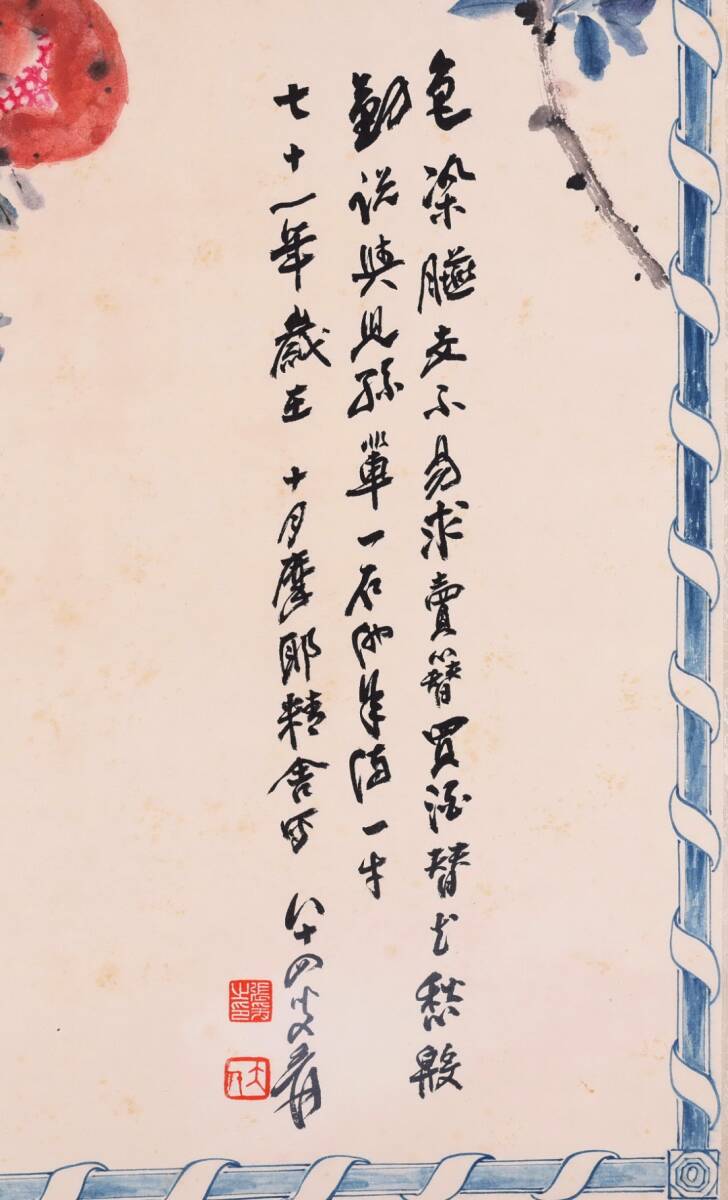 色染臙支不易求賣簪買酒替花愁殷
勤說與兒孫輩一石朱值一牛
七十一年歲在 十月摩耶精舍寫 八十四叟爰
張爰之印
大千